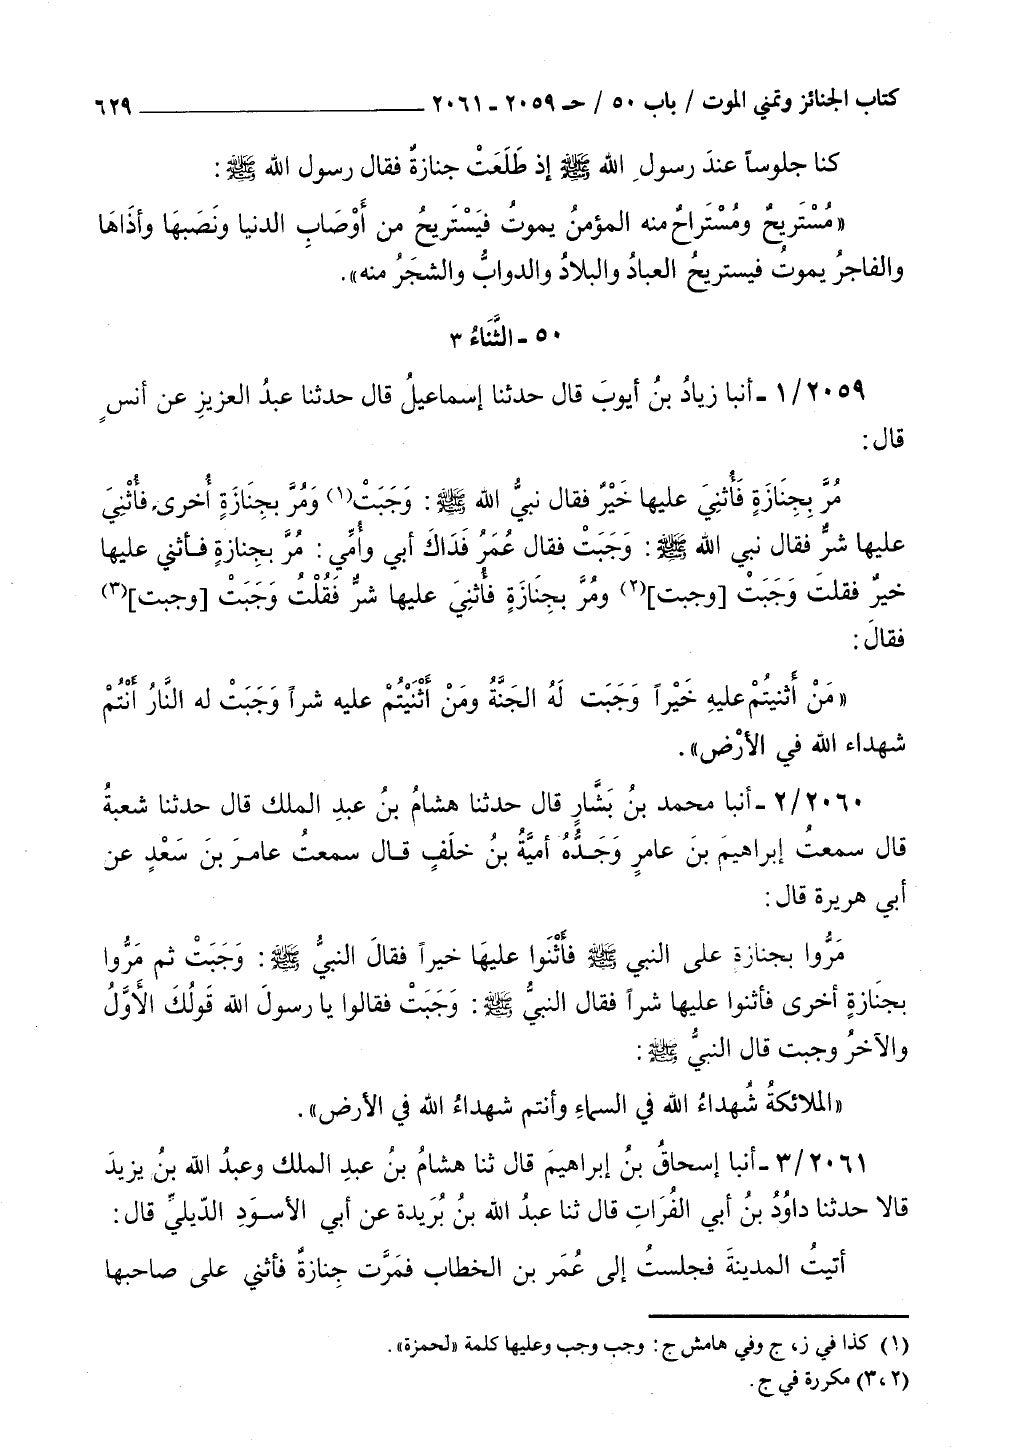 كتاب الجنائز وتمني الموت / باب ٥٠ / حـ ٢٠٥٩ ـ ٢٠٦١ ٦٢٩
كنا جلوساً عندَ رسولِ الله ﷺ إذ طَلَعَتْ جنازةٌ فقال رسول الله ﷺ :
«مُسْتَريحٌ ومُسْتَراحٌ منه المؤمنُ يموتُ فيَسْتَريحُ من أَوْصَابِ الدنيا ونَصَبهَا وأذَاهَا
والفاجرُ يموتُ فيستريحُ العبادُ والبلادُ والدوابُّ والشجَرُ منه».
٥٠ ـ الثَّنَاءُ ٣
١/٢٠٥٩ ـ أنبا زيادُ بنُ أيوبَ قال حدثنا إسماعيلُ قال حدثنا عبدُ العزيزِ عن أنسٍ
قال:
مُرَّ بِجِنَازَةٍ فَأُثنِيَ عليها خَيْرٌ فقال نبيُّ الله ﷺ : وَجَبَتْ(١) وَمُرَّ بجِنَازَةٍ أُخرى فأُثْنِيَ
عليها شرٌّ فقال نبي الله ﷺ: وَجَبَتْ فقال عُمَرُ فَدَاكَ أبي وأُمِّي : مُرَّ بجِنازةٍ فـأثني عليها
خيرٌ فقلتَ وَجَبَتْ [وجبت](٢) ومُرَّ بجِنَازَةٍ فأُثنِيَ عليها شرٌّ فَقُلْتُ وَجَبَتْ [وجبت](٣)
فقالَ:
«مَنْ أَثنيتُمْ عليهِ خَيْراً وَجَبَت لَهُ الجَنَّةُ ومَنْ أَثْنَيْتُمْ عليه شراً وَجَبَتْ له النَّارُ أنْتُمْ
شهداء الله في الأرْض».
٢/٢٠٦٠ ـ أنبا محمد بنُ بَشَّارٍ قال حدثنا هشامُ بنُ عبدِ الملك قال حدثنا شعبةُ
قال سمعتُ إبراهيمَ بنَ عامرٍ وَجَـدُّهُ أميَّةُ بنُ خلَفٍ قـال سمعتُ عامـرَ بنَ سَعْدٍ عن
أبي هريرة قال:
مَرُّوا بجنازة على النبي ﷺ فأَثْنَوا عليهَا خيراً فقالَ النبيُّ ﷺ : وَجَبَتْ ثم مَرُّوا
بجنَازةٍ أخرى فأثنوا عليها شراً فقال النبيُّ ﷺ : وَجَبَتْ فقالوا يا رسولَ الله قَولُكَ الأوَّلُ
والآخرُ وجبت قال النبيُّ ﷺ :
«الملائكةُ شُهداءُ الله في السماءِ وأنتم شهداءُ الله في الأرض».
٣/٢٠٦١ ـ أنبا إسحاقُ بنُ إبراهيمَ قال ثنا هشامُ بنُ عبدِ الملك وعبدُ الله بنُ يزيدَ
قالا حدثنا داوُدُ بنُ أبي الفُرَاتِ قال ثنا عبدُ الله بنُ بُرَيدة عن أبي الأسـوَدِ الدّيليِّ قال:
أتيتُ المدينةَ فجلستُ إلى عُمَر بن الخطاب فمَرَّت جِنازةٌ فأثني على صاحبها
(١) كذا في ز، ج وفي هامش ج: وجب وجب وعليها كلمة «لحمزة».
(٢، ٣) مكررة في ج.